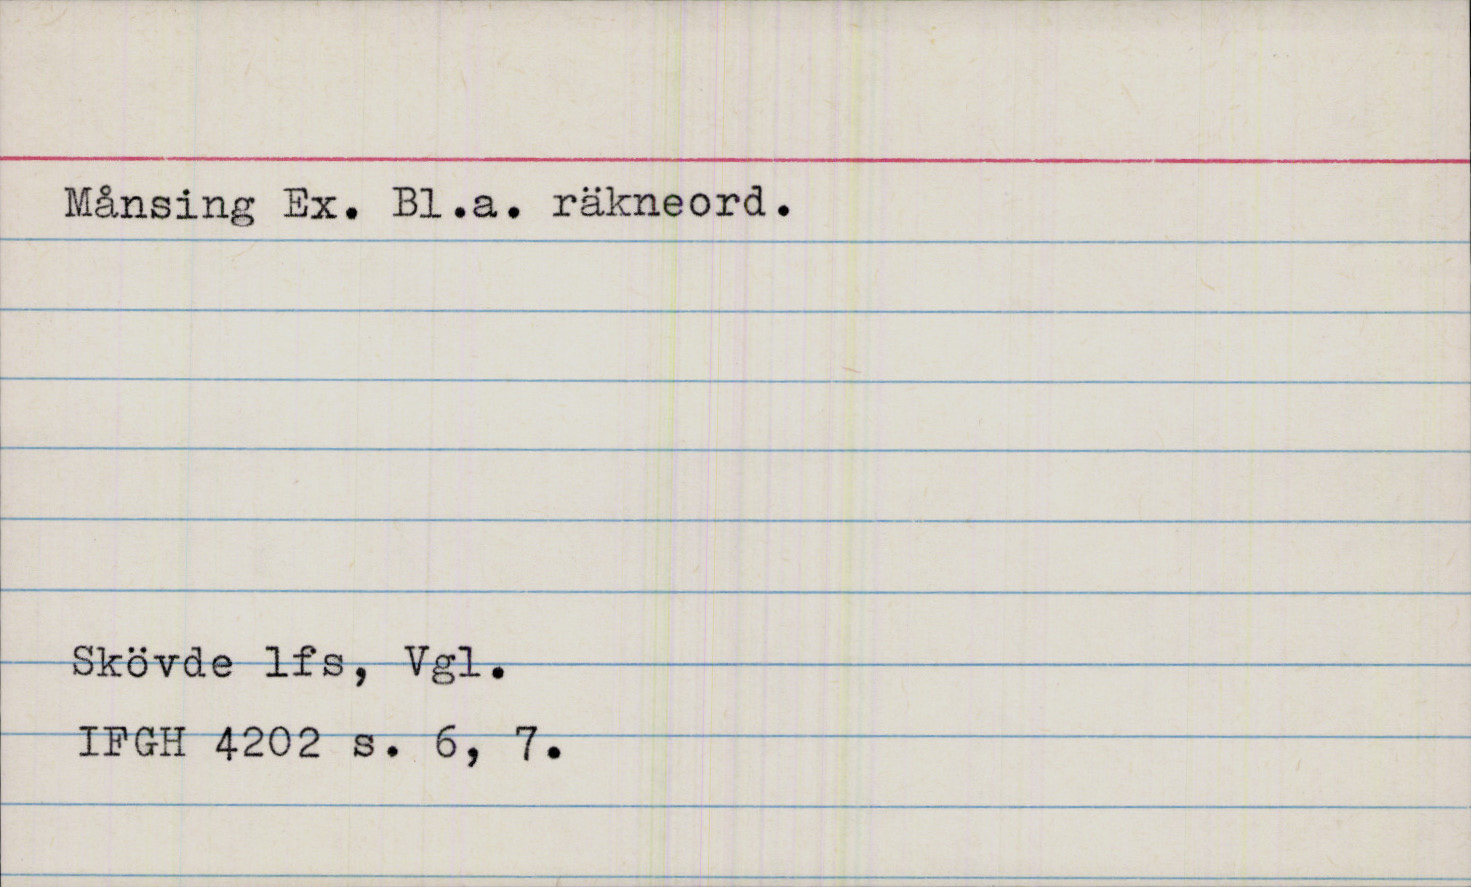 Månsing Ex. Bl.a. räkneord.
Skövde lfs, Vgl.
IFGH 4202 s. 6, 7.